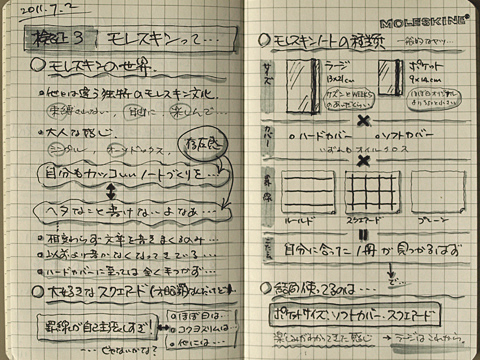 2011.7.2
検証3 モレスキンって…
モレスキンの世界.
・他とは違う独特のモレスキン文化.
束縛されない, 自由に, 楽しんで…
・大人な感じ.
シンプル, オーソドックス, 存在感
自分もカッコいいノートづくりを…
ヘタなこと書けないよなぁ…
・相変わらず文章を書きまくるのみ…
・以前より書かなくなってきている…
・ハードカバーに至っては全く手つかず…
大好きなスクエアード(方眼罫)なんだけど
罫線が自己主張しすぎ!
・ほぼ日は…
・コクヨスリムは…
・他には…
…じゃないかな?
MOLESKINE®
モレスキンノートの種類 一般的なヤツ…
サイズ
ラージ
13×21cm
ポケット
9×14cm
×
カバー
・ハードカバー ・ソフトカバー
いずれもオイルクロス
×
罫線
ルールド スクエアード プレーン
=
自分に合った1冊が見つかるはず
で…
結局使ってるのは…
ポケットサイズ・ソフトカバー・スクエアード
楽しみがわかってきた感じ → ラージはこれから.